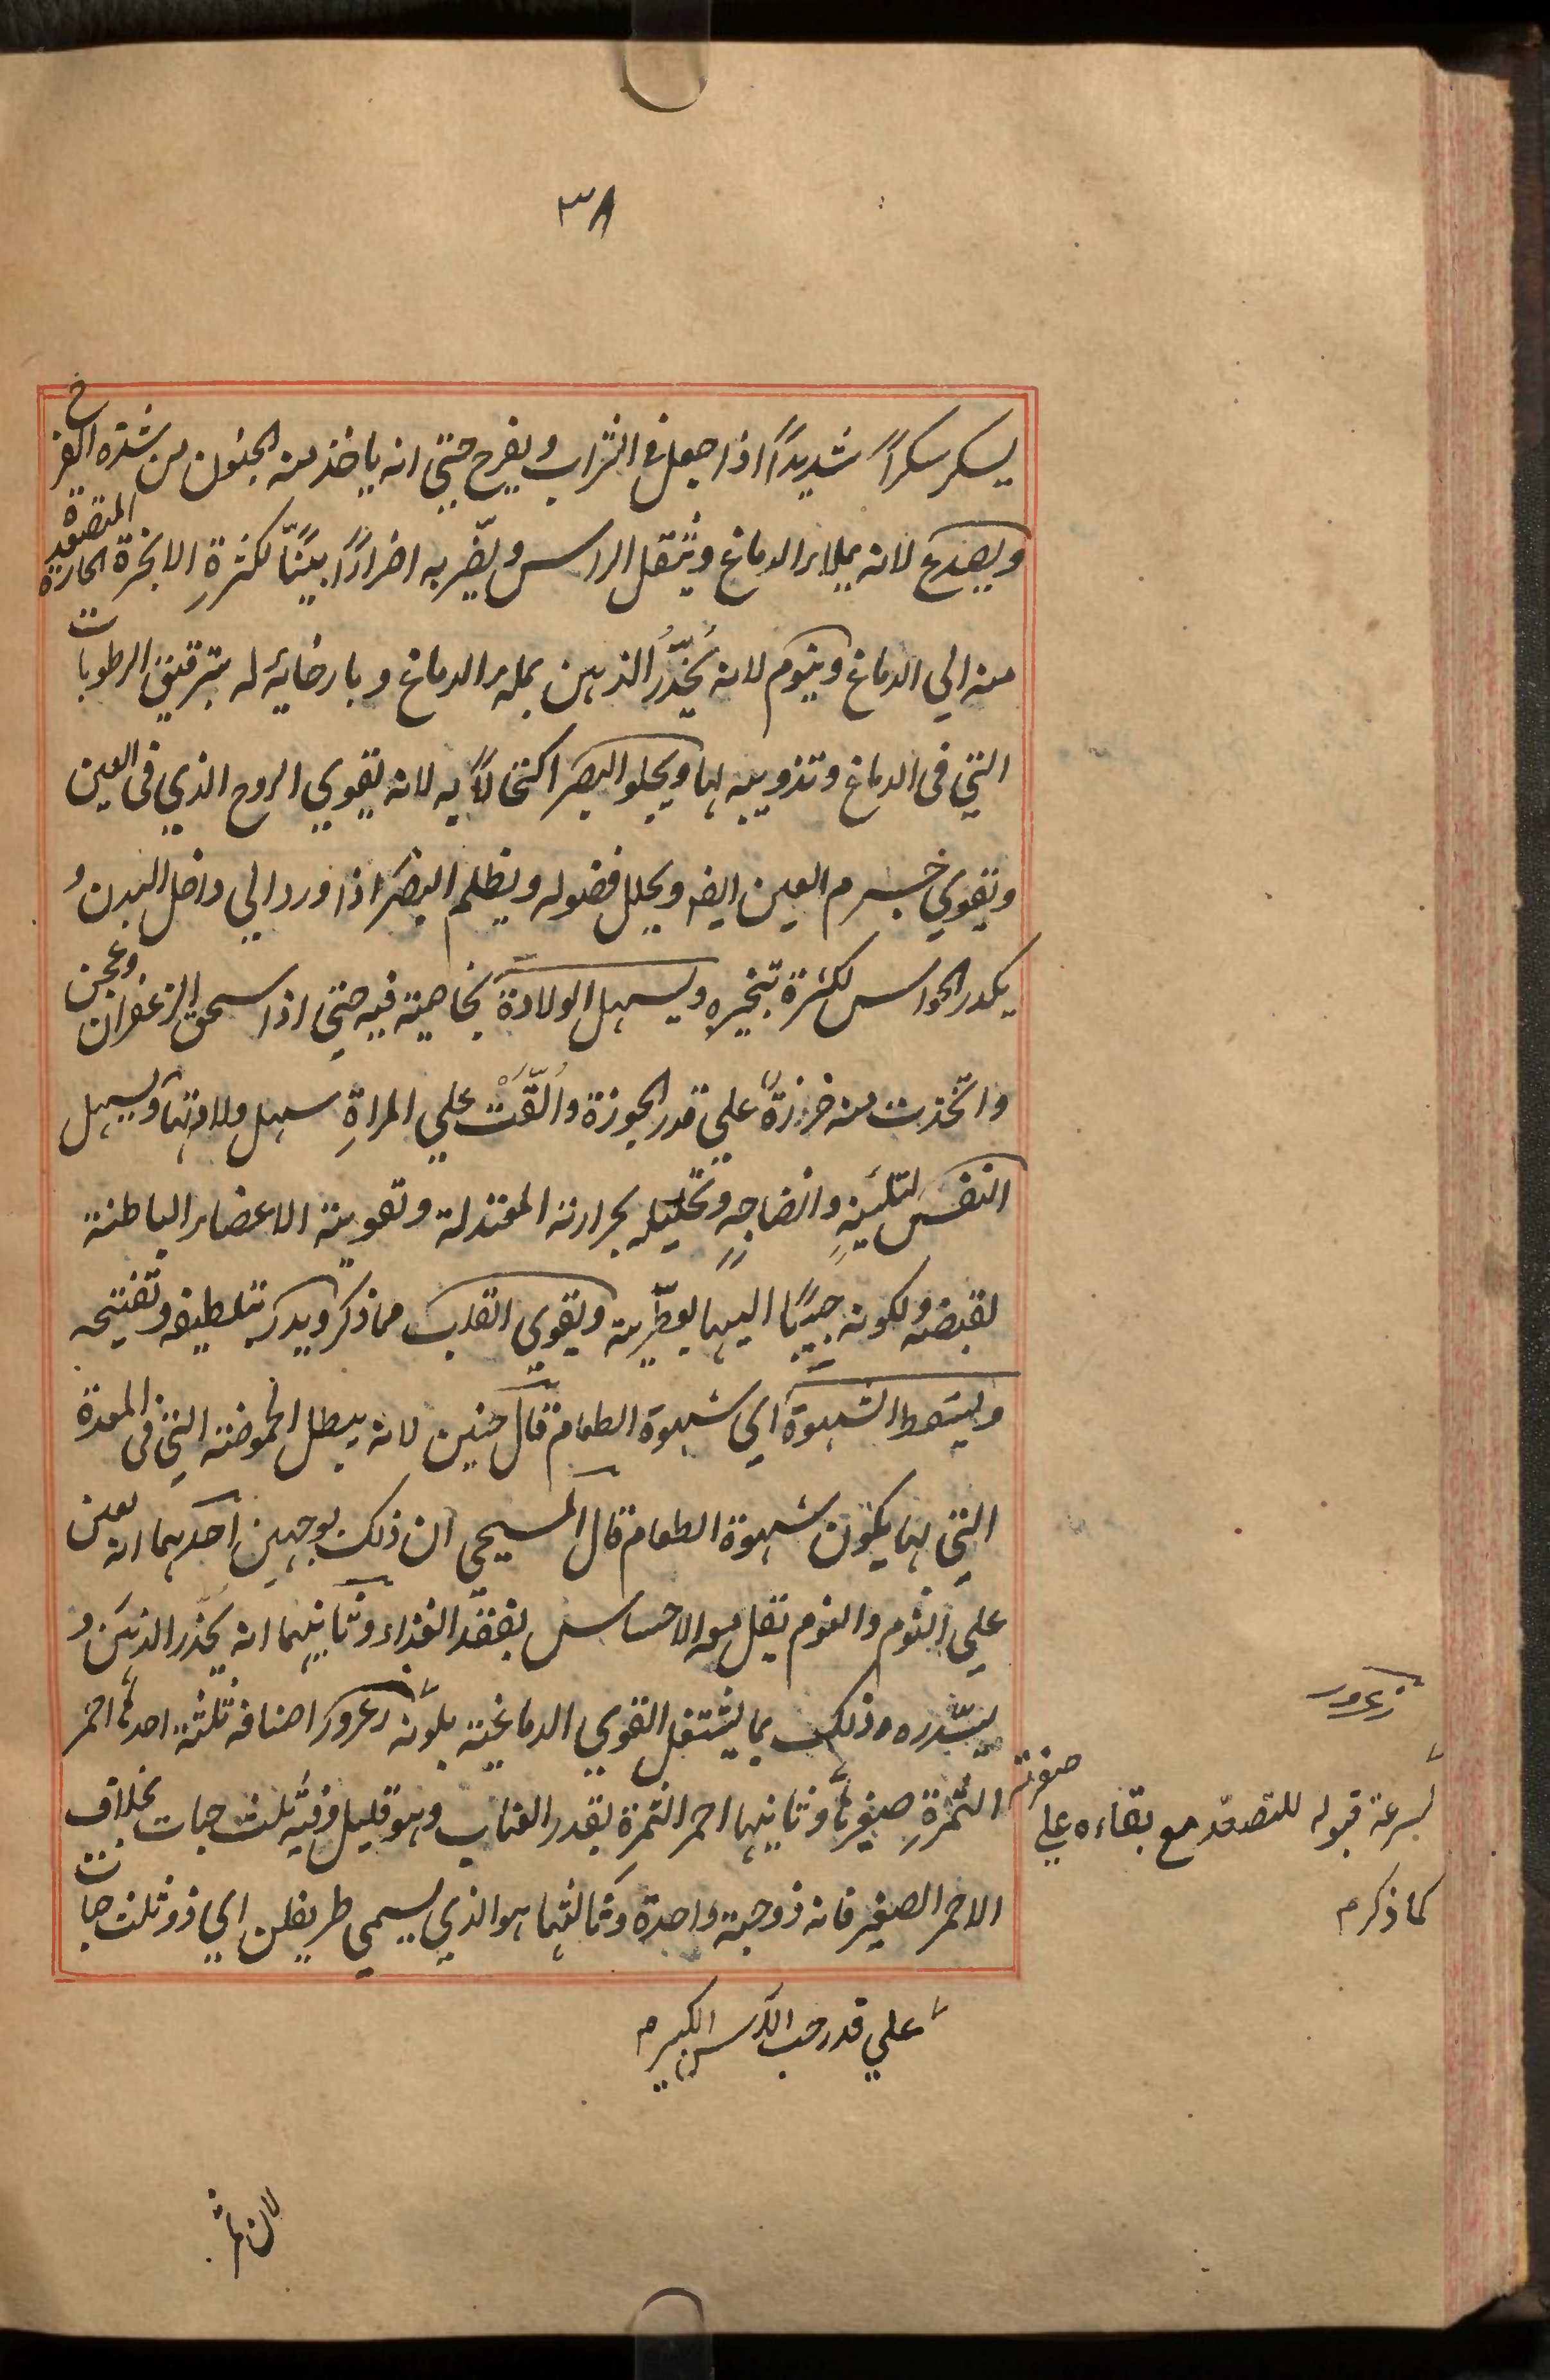 ٣٨
يسكر سكراً شديداً اذا جعل فى الشراب ويفرح حتي انه ياخذ منه الجنون من شدة الفرح
ويصدع لانه يملاء الدماغ ويثقل الراس ويضر به اضراراً بيناً لكثرة الابخرة الحارة المتصعدة
منه الي الدماغ وينوم لانه يخدر الذهن بملء الدماغ وبارخائه له بترقيق الرطوبات
التي فى الدماغ وتذويبه لها ويجلو البصر اكتحالاً به لانه يقوي الروح الذي فى العين
ويقوي جرم العين ايضا ويحلل فضوله ويظلم البصر اذا ورد الي داخل البدن و
يكدر الحواس لكثرة تبخيره ويسهل الولادة بخاصية فيه حتي اذا سحق الزعفران وعجن
واتخذت منه خرزة علي قدر الجوزة والقت علي المراة سهل ولادتها ويسهل
النفس لتلينه وانضاجه وتحليله بحرارته المعتدلة وتقوية الاعضاء الباطنة
لقبضه ولكونه حبيبًا اليها بعطريته ويقوي القلب مما ذكر ويدر بتلطيفه وتفتيحه
ويسقط الشهوة اي شهوة الطعام قال حنين لانه يبطل الحموضة التي فى المعدة
التي بها يكون شهوة الطعام قال المسيحي ان ذلك بوجهين احدهما انه يعين
علي النوم والنوم يقل معه الاحساس بفقد الغذاء وثانيهما انه يخدر الذهن و
يسدره وذلك بما يشتغل القوي الدماغية بلونه زعرور اصنافه ثلثة احدها احمر
الثمرة صغيرها وثانيها احمر الثمرة بقدر العناب وهو قليل وفيه ثلث حبات بخلاف
الاحمر الصغير فانه ذو حبة واحدة وثالثها هو الذي يسمي طريفلن اي ذو ثلث حبات
زعرور
لسرعة قبوله للتصعد مع بقاءه علي صفرته
كما ذكر م
علي قدر حب الآس الكبير م